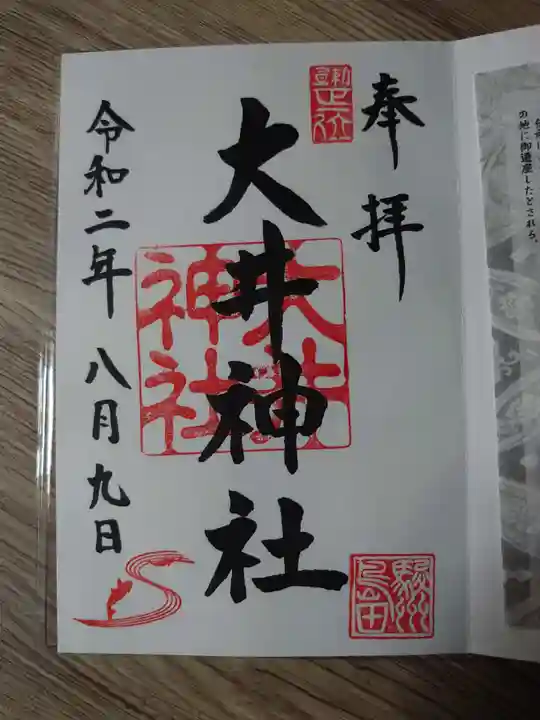 奉拝
大井神社
大井神社
令和二年 八月九日
駿州島田
の地に御遷座したとされる。